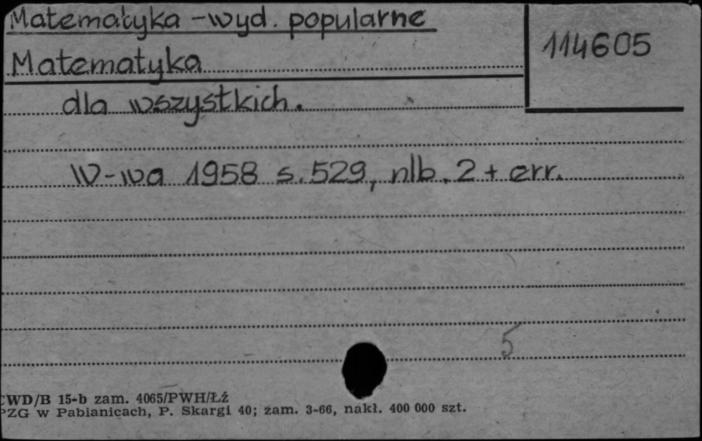 Matematyka - wyd. popularne
114605
Matematyka
dla wszystkich.
W-wa 1958 s. 529, nlb. 2 + err.
5
CWD/B 15-b zam. 4065/PWH/Łź
PZG w Pabianicach, P. Skargi 40; zam. 3-66, nakł. 400 000 szt.